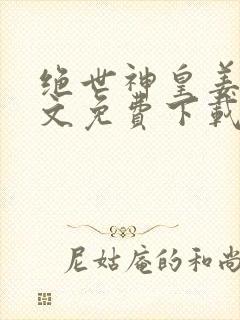 绝世神皇姜
文免费下载
尼姑庵的和尚